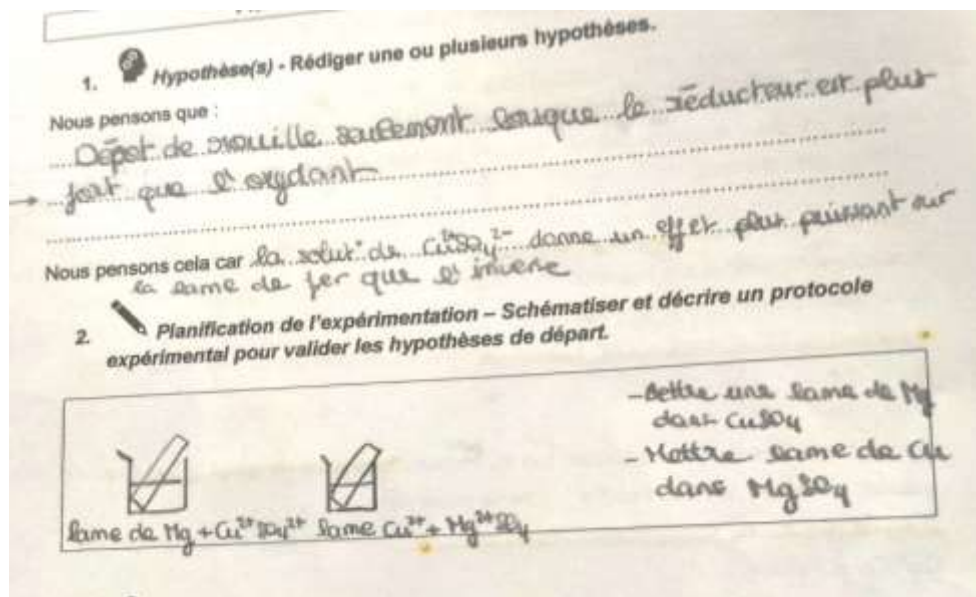 1. Hypothèse(s) - Rédiger une ou plusieurs hypothèses.
Nous pensons que :
Dépot de rouille seulement lorsque le réducteur est plus
→ fort que l'oxydant
Nous pensons cela car la solut° de Cu²⁺SO₄²⁻ donne un effet plus puissant sur
la lame de fer que l'inverse
2. Planification de l'expérimentation – Schématiser et décrire un protocole
expérimental pour valider les hypothèses de départ.
- Mettre une lame de Mg
dans CuSO₄
- Mettre lame de Cu
dans MgSO₄
lame de Mg + Cu²⁺SO₄²⁺ lame Cu²⁺ + Mg²⁺SO₄